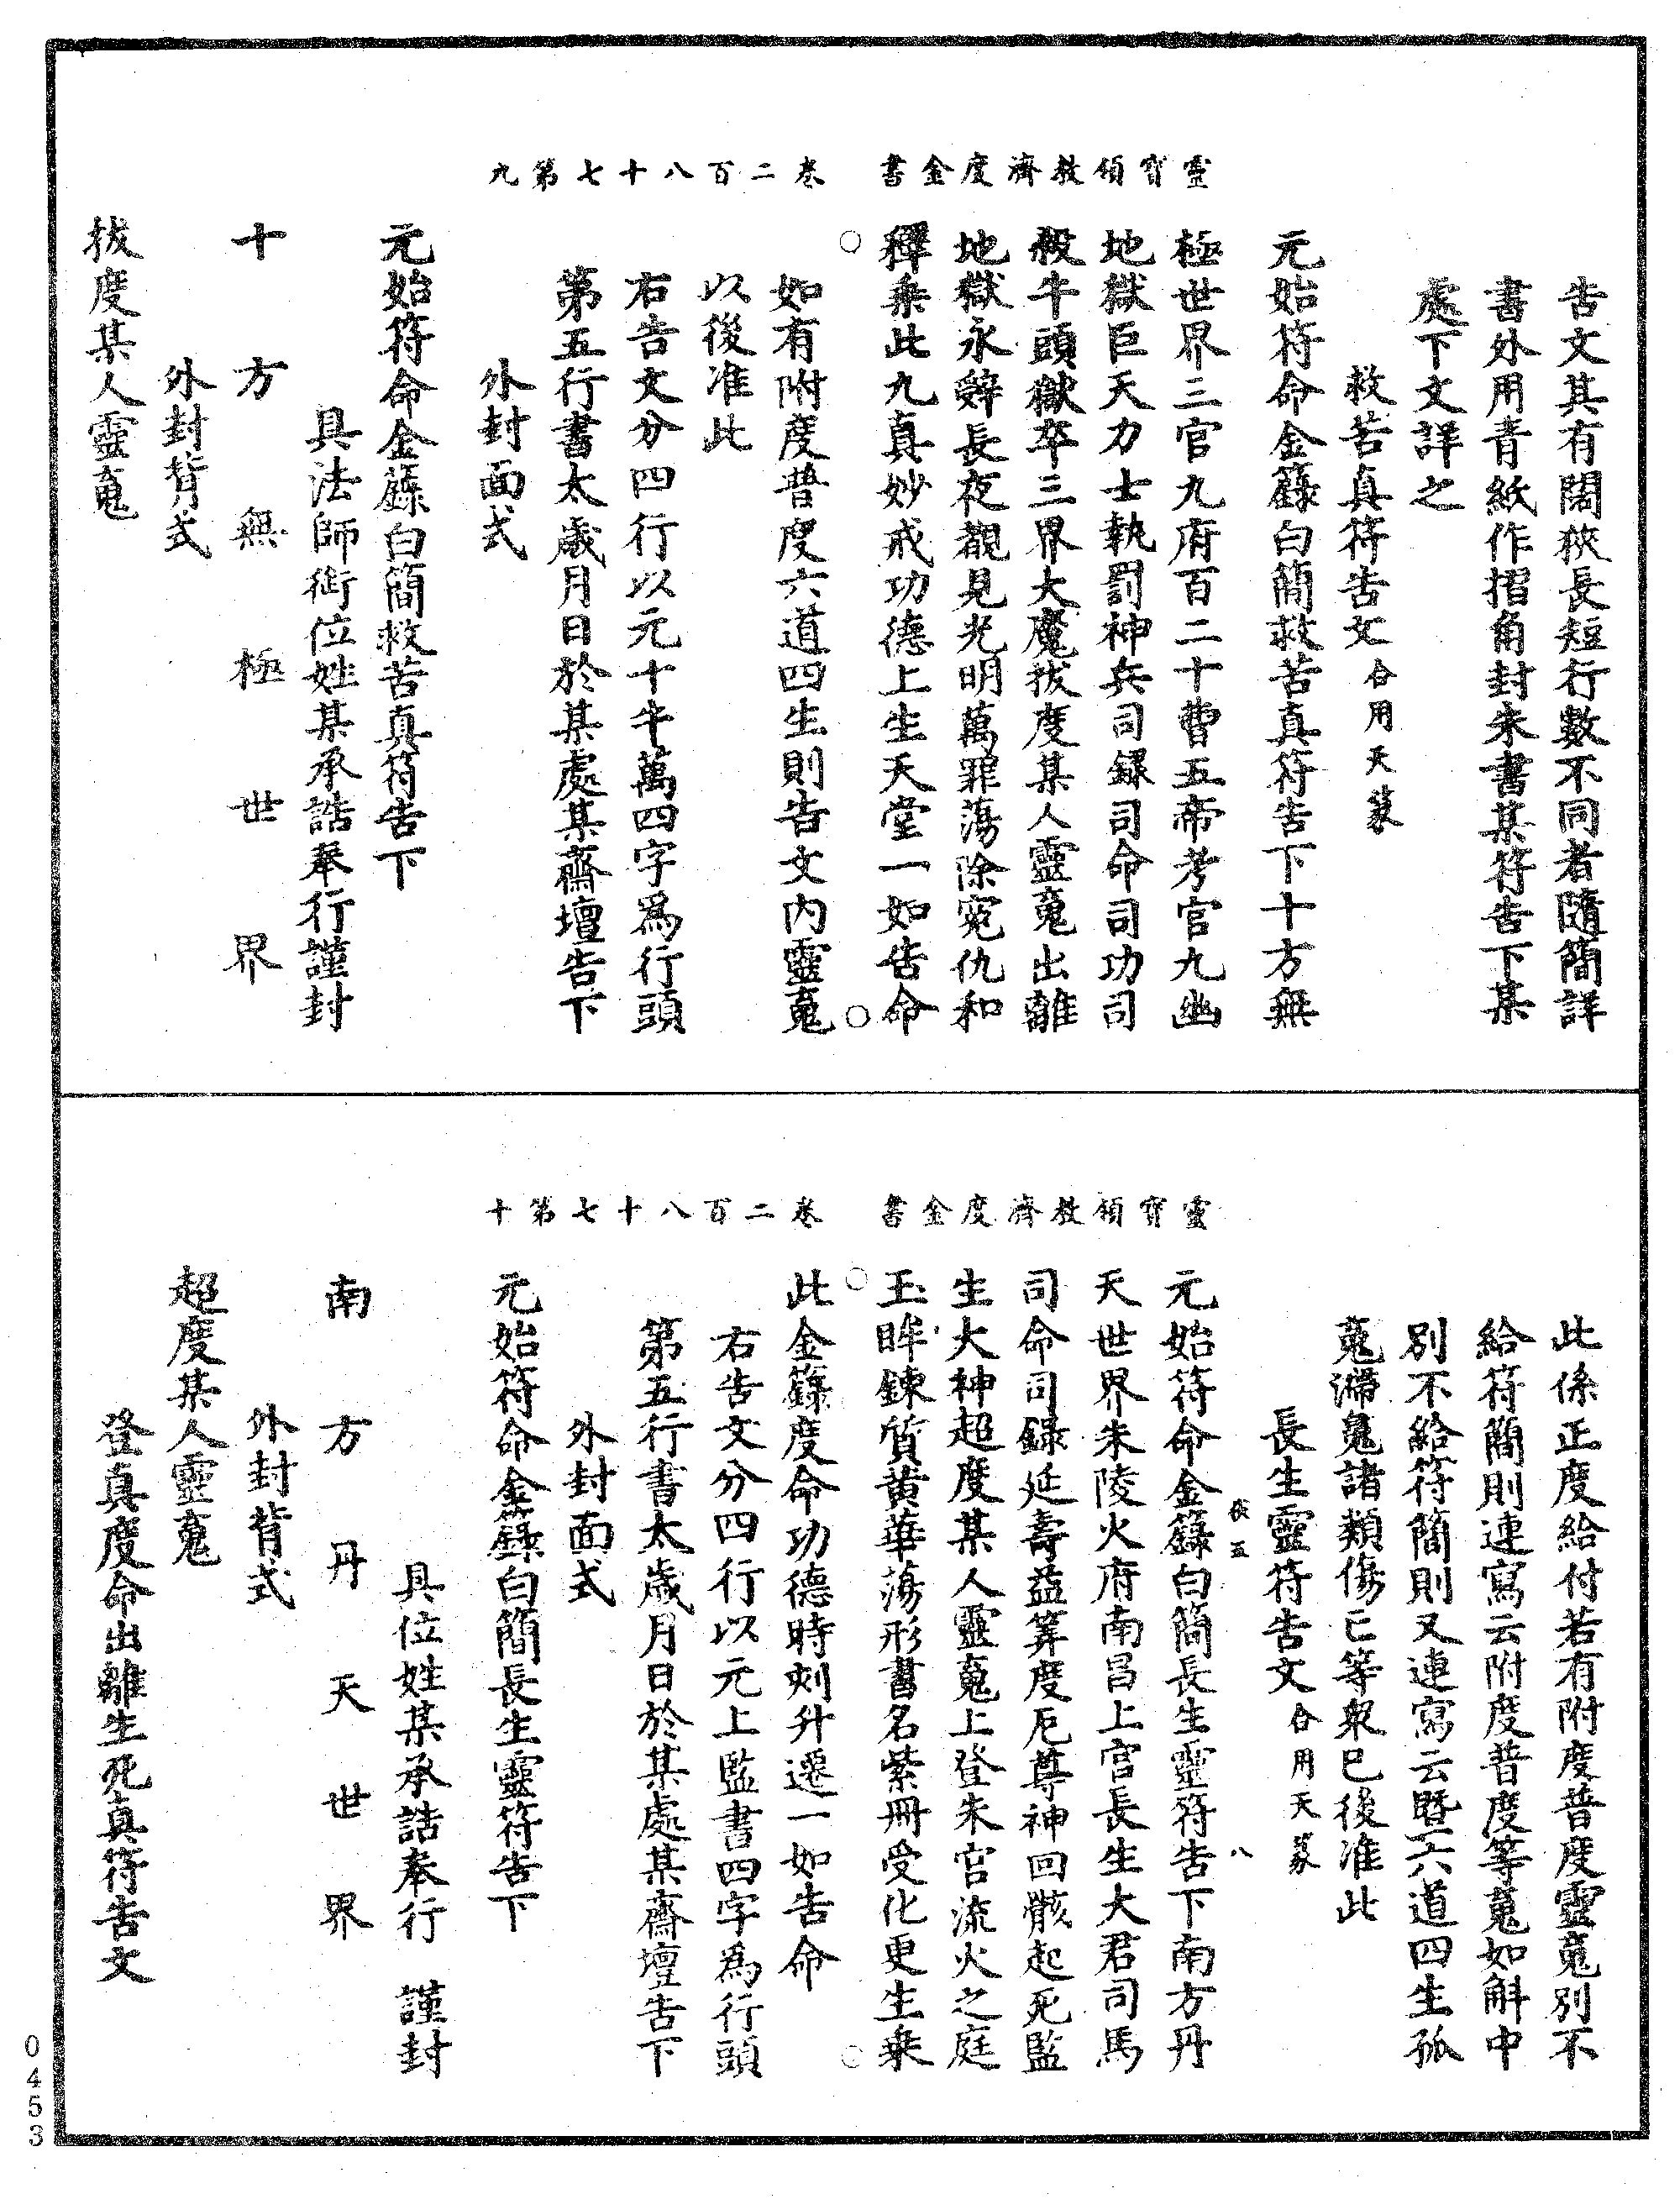 靈寶領教濟度金書　卷二百八十七第九
告文其有闊狹長短行數不同者隨簡詳
書外用青紙作摺角封朱書某符告下某
處下文詳之
救苦真符告文合用天篆
元始符命金籙白簡救苦真符告下十方無
極世界三官九府百二十曹五帝考官九幽
地獄巨天力士執罰神兵司録司命司功司
殺牛頭獄卒三界大魔拔度某人靈䰟出離
地獄永辭長夜覩見光明萬罪蕩除寃仇和
釋乗此九真妙戒功德上生天堂一如告命
如有附度普度六道四生則告文内靈䰟
以後准此
右告文分四行以元十牛萬四字爲行頭
第五行書太歲月日於某處某齋壇告下
外封面式
元始符命金籙白簡救苦真符告下
具法師銜位姓某承誥奉行謹封
十方無極世界
外封背式
拔度某人靈䰟
靈寶領教濟度金書　卷二百八十七第十
此係正度給付若有附度普度靈䰟别不
給符簡則連寫云附度普度等䰟如斛中
别不給符簡則又連寫云暨六道四生孤
䰟滯魄諸類傷亡等衆已後准此
長生靈符告文合用天篆
八
元始符命金籙白簡長生靈符告下南方丹
天世界朱陵火府南昌上宫長生大君司馬
司命司録延壽益筭度厄尊神回骸起死監
生大神超度某人靈䰟上登朱宫流火之庭
玉眸鍊質黄華蕩形書名紫冊受化更生乗
此金籙度命功德時刻升遷一如告命
右告文分四行以元上監書四字為行頭
第五行書太歲月日於某處某齋壇告下
外封面式
元始符命金籙白簡長生靈符告下
具位姓某承誥奉行　謹封
南方丹天世界
外封背式
超度某人靈䰟
登真度命出離生死真符告文
0453